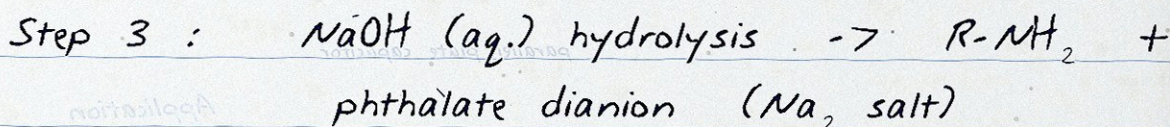 Step 3 : NaOH (aq.) hydrolysis -> R-NH₂ +
phthalate dianion (Na₂ salt)